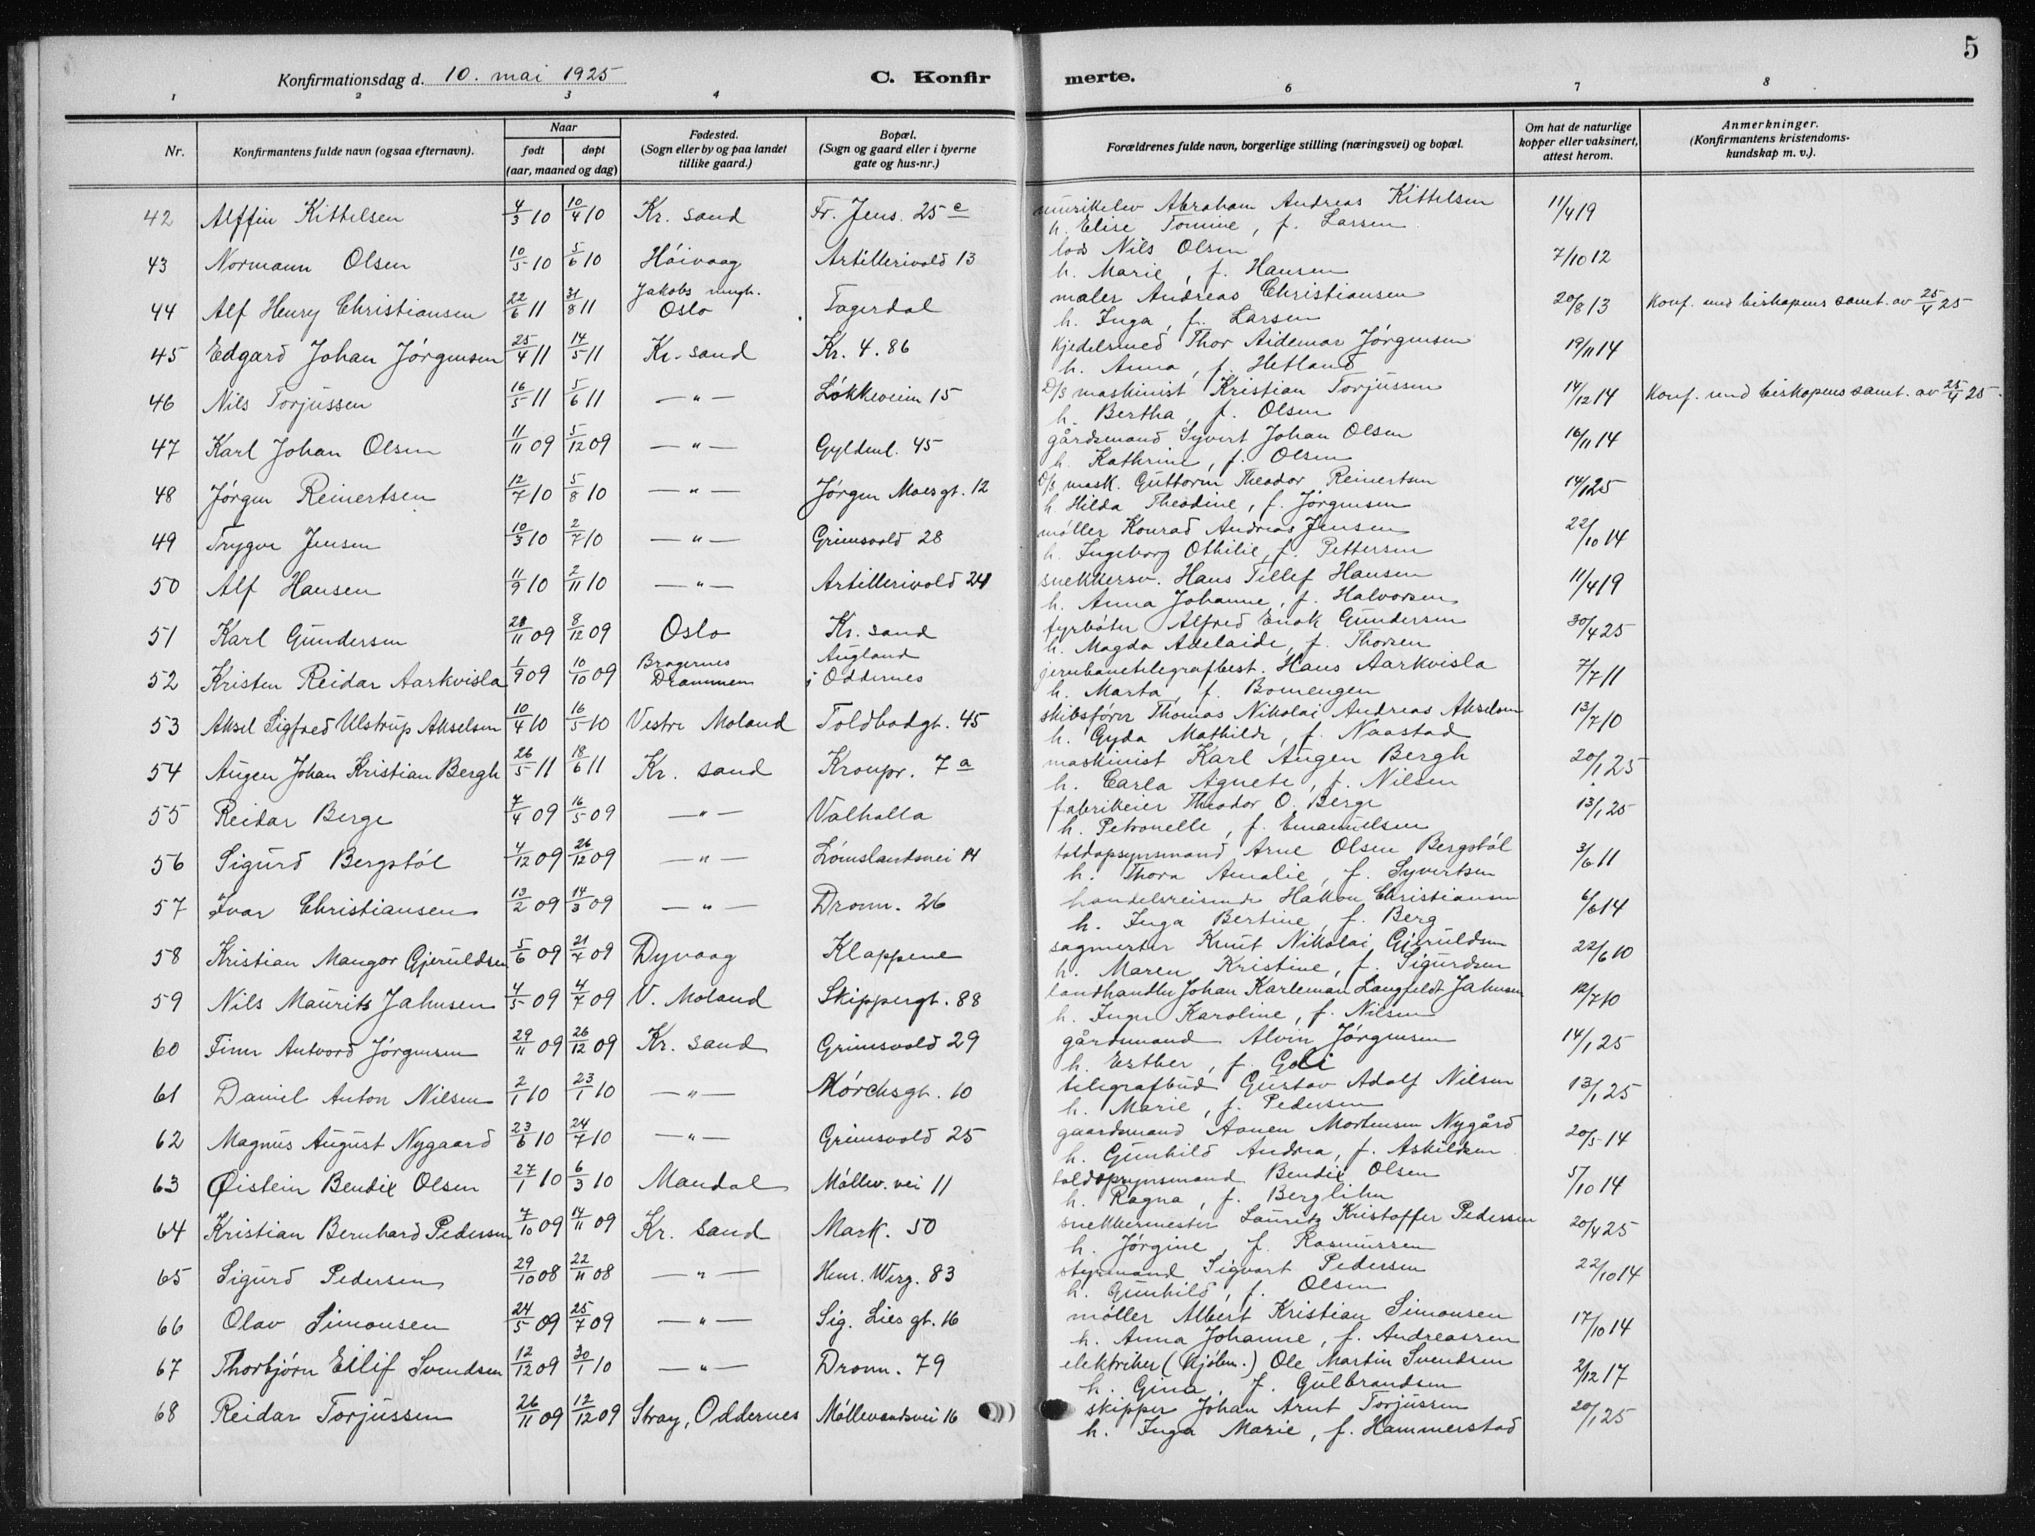 5
Konfirmationsdag d. 10. mai 1925 C. Konfir merte.
1 2 3 4 6 7 8
Nr. Konfirmantens fulde navn (ogsaa efternavn). Naar født døpt (aar, maaned og dag) Fødested. (Sogn eller by og paa landet tillike gaard.) Bopæl. (Sogn og gaard eller i byerne gate og hus-nr.) Forældrenes fulde navn, borgerlige stilling (næringsvei) og bopæl. Om hat de naturlige kopper eller vaksinert, attest herom. Anmerkninger. (Konfirmantens kristendoms- kundskap m. v.).
42 Alffin Kittelsen 4/3 10 10/4 10 Kr. sand Fr. Jens. 25 c Abraham Andreas Kittelsen 11/4 19
h. Elise Tomine, f. Larsen
43 Normann Olsen 10/5 10 5/6 10 Høivaag Artillerivold 13 los Nils Olsen 7/10 12
h. Marie, f. Hansen
44 Alf Henry Christiansen 22/6 11 31/8 11 Jakobs mngh. Oslo Fagerdal maler Andreas Christiansen 20/8 13 Konf. med biskopens samt. av 25/4 25
h. Inga, f. Larsen
45 Edgard Johan Jørgensen 25/4 11 14/5 11 Kr. sand Kr. 4. 86 kjedelsmed Thor Aidemar Jørgensen 19/11 14
h. Anna, f. Hetland
46 Nils Torjussen 16/5 11 5/6 11 —"— Løkkeveien 15 D/S maskinist Kristian Torjussen 14/12 14 Konf. med biskopens samt. av 25/4 25
h. Bertha, f. Olsen
47 Karl Johan Olsen 11/11 09 5/12 09 —"— Gyldenl. 45 gårdsmand Syvert Johan Olsen 16/11 14
h. Kathrine, f. Olsen
48 Jørgen Reinertsen 12/7 10 5/8 10 —"— Jørgen Moesgt. 12 D/S mask. Guttorm Theodor Reinertsen 14/1 25
h. Hilda Theodine, f. Jørgensen
49 Trygve Jensen 10/3 10 2/7 10 —"— Grimsvold 28 møller Konrad Andreas Jensen 22/10 14
h. Ingeborg Othilie, f. Pettersen
50 Alf Hansen 11/9 10 2/11 10 —"— Artillerivold 24 snekkersv. Hans Tellef Hansen 11/4 19
h. Anna Johanne, f. Halvorsen
51 Karl Gundersen 28/11 09 8/12 09 Oslo Kr. sand fyrbøter Alfred Enok Gundersen 30/4 25
h. Magda Adelaide, f. Thorsen
52 Kristen Reidar Aarkvisla 1/9 09 10/10 09 Bragernes Drammen Augland i Oddernes jernbanetelegrafbest. Hans Aarkvisla 7/7 11
h. Marta, f. Bomengen
53 Aksel Sigfred Ulstrup Akselsen 10/4 10 16/5 10 Vestre Moland Toldbodgt. 45 skibsfører Thomas Nikolai Andreas Akselsen 13/7 10
h. Gyda Mathilde, f. Naastad
54 Augen Johan Kristian Bergh 26/5 11 18/6 11 Kr. sand Kronpr. 7 a maskinist Karl Augen Bergh 20/1 25
h. Carla Agnete, f. Nilsen
55 Reidar Berge 7/4 09 16/5 09 —"— Valhalla fabrikeier Theodor O. Berge 13/1 25
h. Petronelle, f. Emanuelsen
56 Sigurd Bergstøl 4/12 09 26/12 09 —"— Lømslandsvei 14 toldopsynsmand Arne Olsen Bergstøl 3/6 11
h. Thora Amalie, f. Syvertsen
57 Ivar Christiansen 13/2 09 14/3 09 —"— Dronn. 26 handelsreisende Haakon Christiansen 6/6 14
h. Inga Bertine, f. Berg
58 Kristian Mangor Gjeruldsen 5/6 09 21/7 09 Dyvaag Klappene sagmester Knut Nikolai Gjeruldsen 22/6 10
h. Maren Kristine, f. Sigurdsen
59 Nils Maurits Jahnsen 4/5 09 4/7 09 V. Moland Skippergt. 88 landhandler Johan Karleman Langfeldt Jahnsen 12/7 10
h. Inger Karoline, f. Nilsen
60 Finn Antvord Jørgensen 29/11 09 26/12 09 Kr. sand Grimsvold 29 gårdsmand Alvin Jørgensen 14/1 25
h. Esther, f. Goli
61 Daniel Anton Nilsen 2/1 10 23/1 10 —"— Mørchsgt. 10 telegrafbud Gustav Adolf Nilsen 13/1 25
h. Marie, f. Pedersen
62 Magnus August Nygaard 23/6 10 24/7 10 —"— Grimsvold 25 gaardsmand Aanen Mortensen Nygård 20/5 14
h. Gunhild Andrea, f. Askildsen
63 Øistein Bendix Olsen 27/1 10 6/3 10 Mandal Møllev. vei 11 toldopsynsmand Bendix Olsen 5/10 14
h. Ragna, f. Berglihn
64 Kristian Bernhard Pedersen 7/10 09 14/11 09 Kr. sand Mark. 50 snekkermester Lauritz Kristoffer Pedersen 20/4 25
h. Jørgine, f. Rasmussen
65 Sigurd Pedersen 29/10 08 22/11 08 —"— Henr. Werg. 83 styrmand Sigvart Pedersen 22/10 14
h. Gunhild, f. Olsen
66 Olav Simonsen 24/5 09 25/7 09 —"— Sig. Lies gt. 16 møller Albert Kristian Simonsen 17/10 14
h. Anna Johanne, f. Andreassen
67 Thorbjørn Eilif Svendsen 12/12 09 30/1 10 —"— Dronn. 79 elektriker (Kjøbm.) Ole Martin Svendsen 2/12 17
h. Gina, f. Gulbrandsen
68 Reidar Torjussen 26/11 09 12/12 09 Stray, Oddernes Møllevandsvei 16 skipper Johan Arnt Torjussen 20/1 25
h. Inga Marie, f. Hammerstad